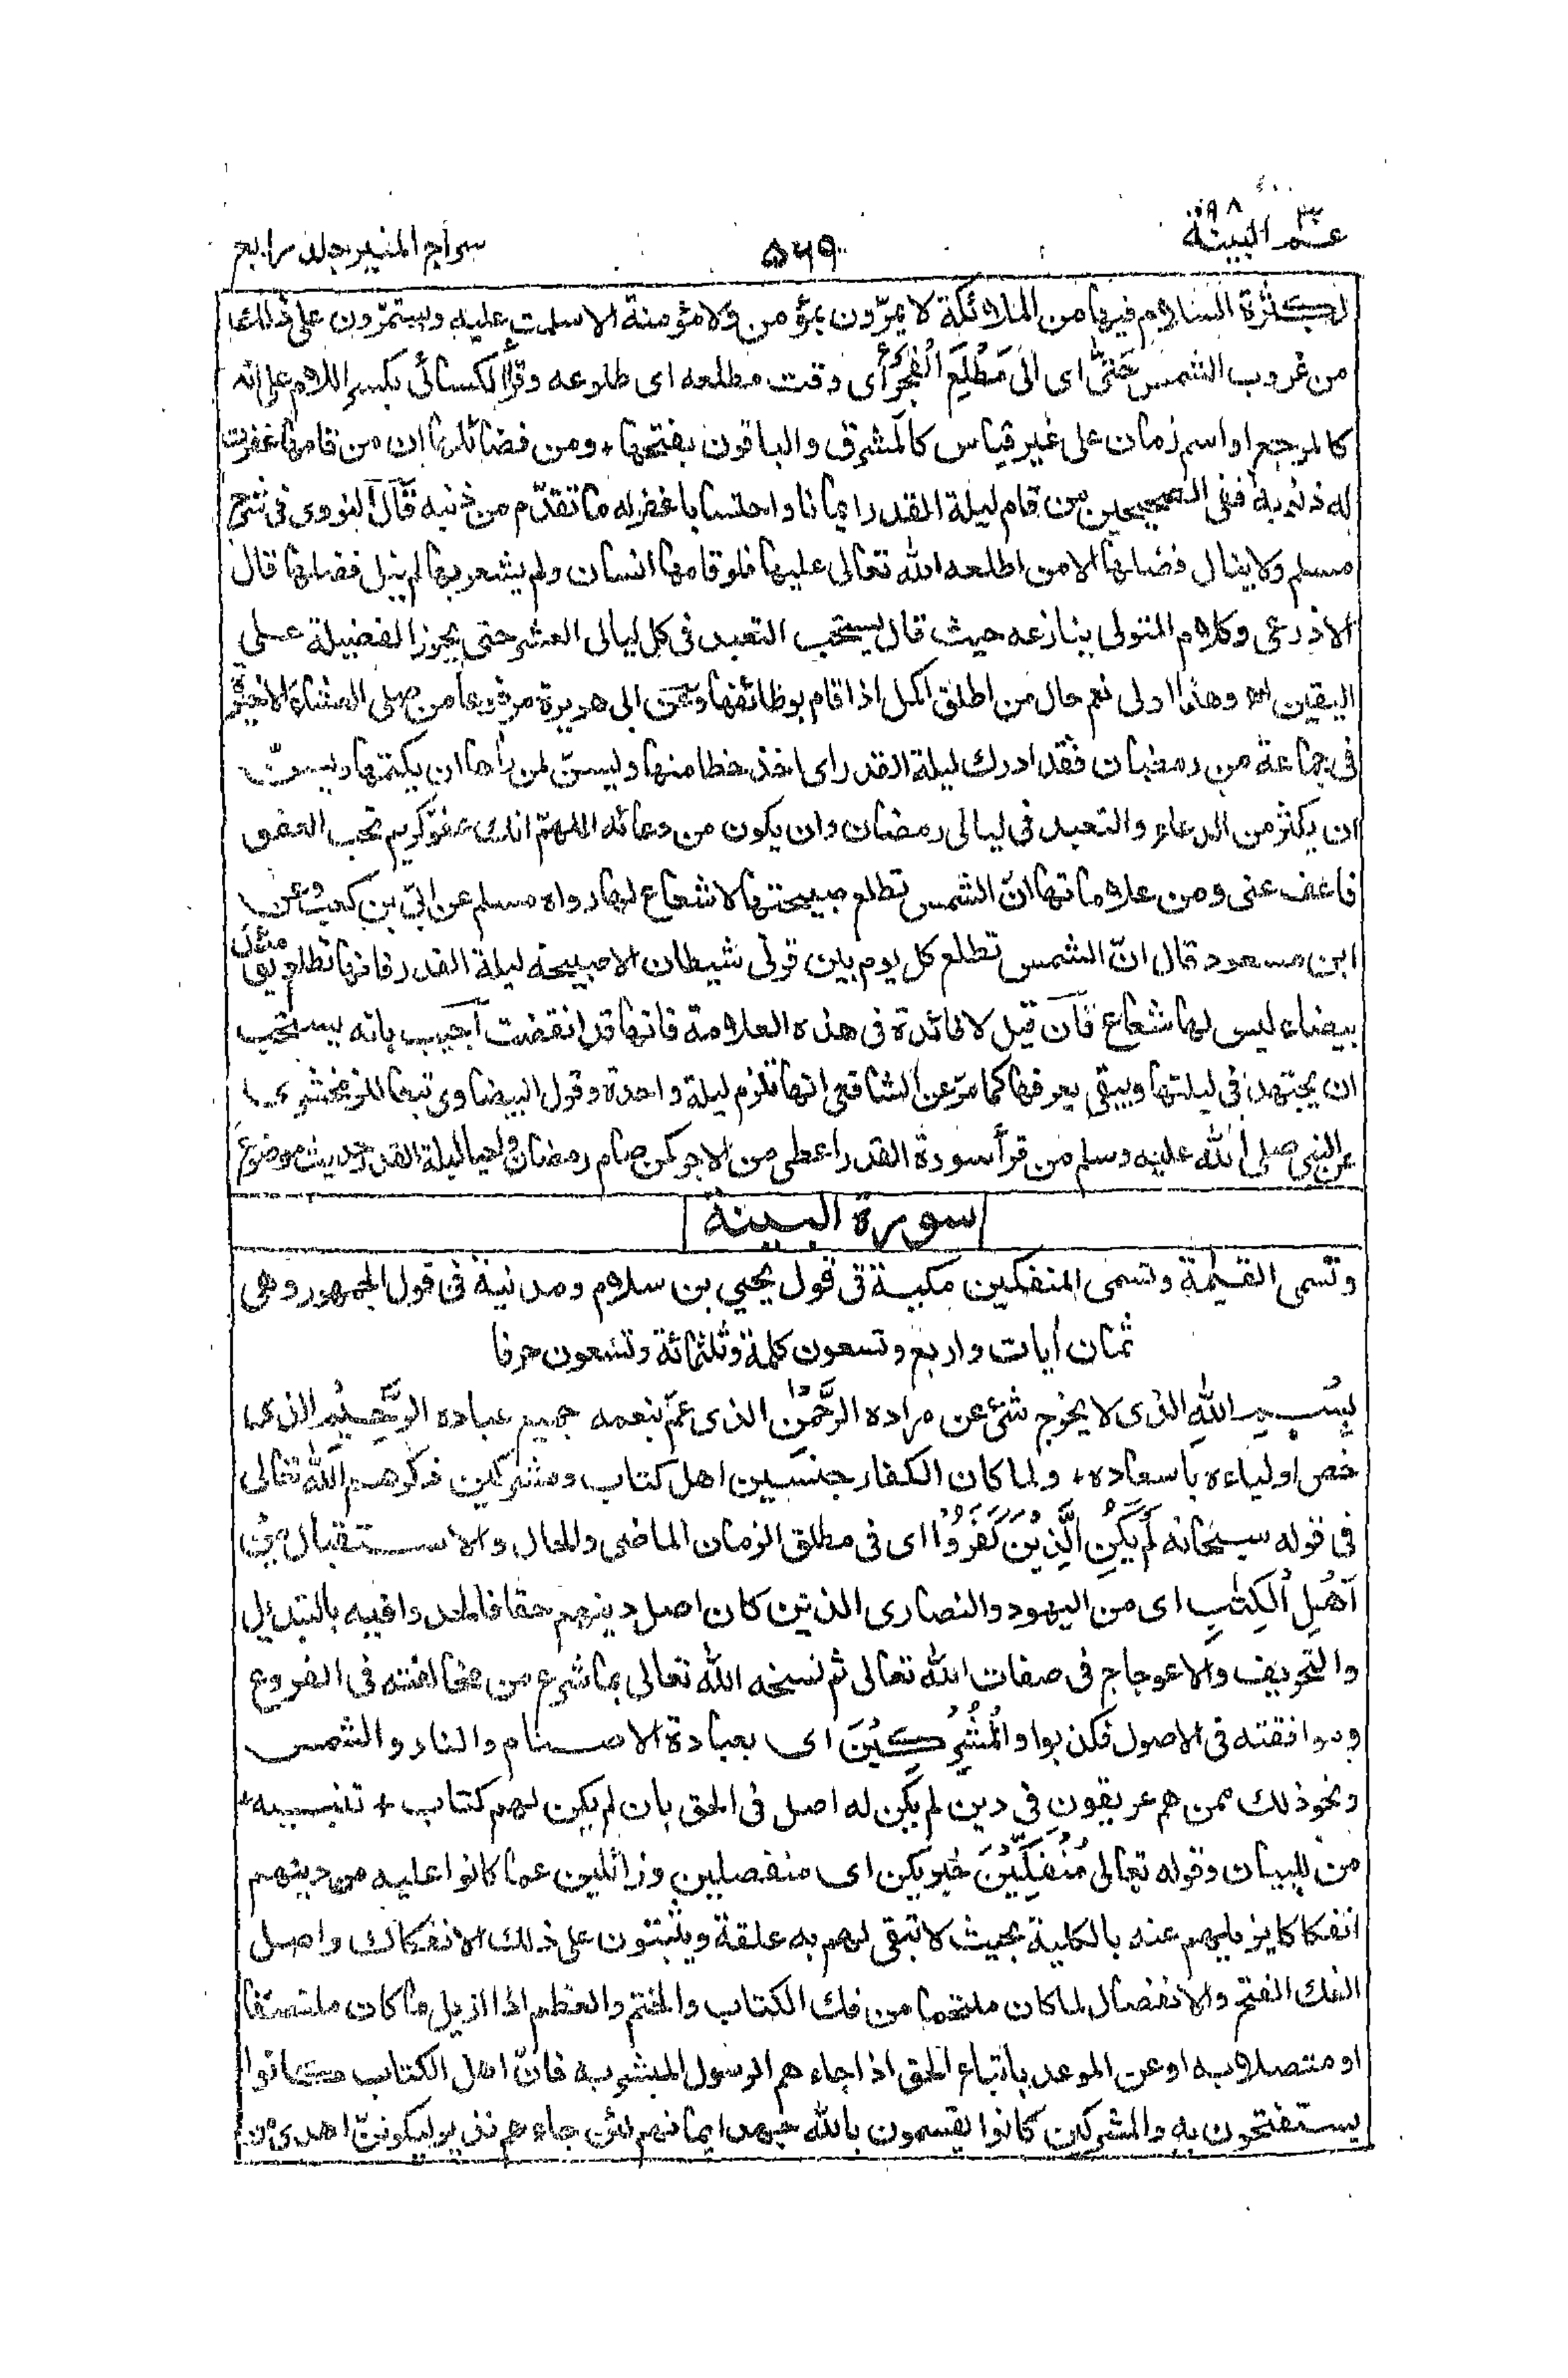 عمّ ٣٠ البينة ٩٨
٥٦٩
سراج المنير جلد رابع
لكثرة السلام فيها من الملائكة لا يمرّون بمؤمن ولا مؤمنة الا سلمت عليه ويستمرّون على ذلك
من غروب الشمس حَتّٰى اى الى مَطْلَعِ الْفَجْرِ اى وقت مطلعه اى طلوعه وقرأ الكسائى بكسر اللام على انه
كالمرجع او اسم زمان على غير قياس كالمشرق والباقون بفتحها + ومن فضائلها ان من قامها غفرت
له ذنوبه ففى الصحيحين من قام ليلة القدر ايمانا واحتسابا غفر له ما تقدّم من ذنبه قال النووى فى شرح
مسلم ولا ينال فضلها الا من اطلعه الله تعالى عليها فلو قامها انسان ولم يشعر بها لم ينل فضلها قال
الاذرعى وكلام المتولى ينازعه حيث قال يستحب التعبد فى كل ليالى العشر حتى يحوز الفضيلة على
اليقين اه وهذا اولى نعم حال من اطلق اكمل اذا قام بوظائفها وعن ابى هريرة مرفوعا من صلى العشاء الاخيرة
فى جماعة من رمضان فقد ادرك ليلة القدر اى اخذ حظا منها ويسنّ لمن رأها ان يكتمها ويسنّ
ان يكثر من الدعاء والتعبد فى ليالى رمضان وان يكون من دعائه اللهمّ انك عفوّ كريم تحب العفو
فاعف عنى ومن علاماتها انّ الشمس تطلع صبيحتها لا شعاع لها رواه مسلم عن ابىّ بن كعب وعن
ابن مسعود قال انّ الشمس تطلع كل يوم بين قرنى شيطان الا صبيحة ليلة القدر فانها تطلع يومئذ
بيضاء ليس لها شعاع فان قيل لا فائدة فى هذه العلامة فانها قد انقضت اجيب بانه يستحب
ان يجتهد فى ليلتها ويبقى يعرفها كما مرّ عن الشافعى انها تلزم ليلة واحدة وقول البيضاوى تبعا للزمخشرى
عن النبى صلى الله عليه وسلم من قرأ سورة القدر اعطى من الاجر كمن صام رمضان واحيا ليلة القدر حديث موضوع
سورة البينة
وتسمى القيّمة وتسمى المنفكين مكية فى قول يحيى بن سلام ومدنية فى قول الجمهور وهى
ثمان أيات واربع وتسعون كلمة وثلثمائة وتسعون حرفا
بِسْمِ اللهِ الذى لا يخرج شئ عن مراده الرَّحْمٰنِ الذى عمّ بنعمه جميع عباده الرَّحِيْمِ الذى
خص اولياءه باسعاده + ولما كان الكفار جنسين اهل كتاب ومشركين ذكرهم الله تعالى
فى قوله سبحانه لَمْ يَكُنِ الَّذِيْنَ كَفَرُوْا اى فى مطلق الزمان الماضى والحال والاستقبال مِنْ
اَهْلِ الْكِتٰبِ اى من اليهود والنصارى الذين كان اصل دينهم حقا فالحدوا فيه بالتبديل
والتحريف والاعوجاج فى صفات الله تعالى ثم نسخه الله تعالى بما شرع من مخالفته فى الفروع
وموافقته فى الاصول فكذبوا وَالْمُشْرِكِيْنَ اى بعبادة الاصنام والنار والشمس
ونحو ذلك ممن هم عريقون فى دين لم يكن له اصل فى الحق بان لم يكن لهم كتاب + تنبيه +
من للبيان وقوله تعالى مُنْفَكِّيْنَ خبر يكن اى منفصلين وزائلين عما كانوا عليه من دينهم
انفكاكا يزيلهم عنه بالكلية بحيث لا تبقى لهم به علقة ويثبتون على ذلك الانفكاك واصل
الفك الفتح والانفصال لما كان ملتحما من فك الكتاب والختم والعظم اذا ازيل ما كان ملتصقا
او متصلا به او عن الموعد باتباع الحق اذا جاءهم الرسول المبشر به فانّ اهل الكتاب كانوا
يستفتحون به والمشركين كانوا يقسمون بالله جهد ايمانهم لئن جاءهم نذير ليكوننّ اهدى من